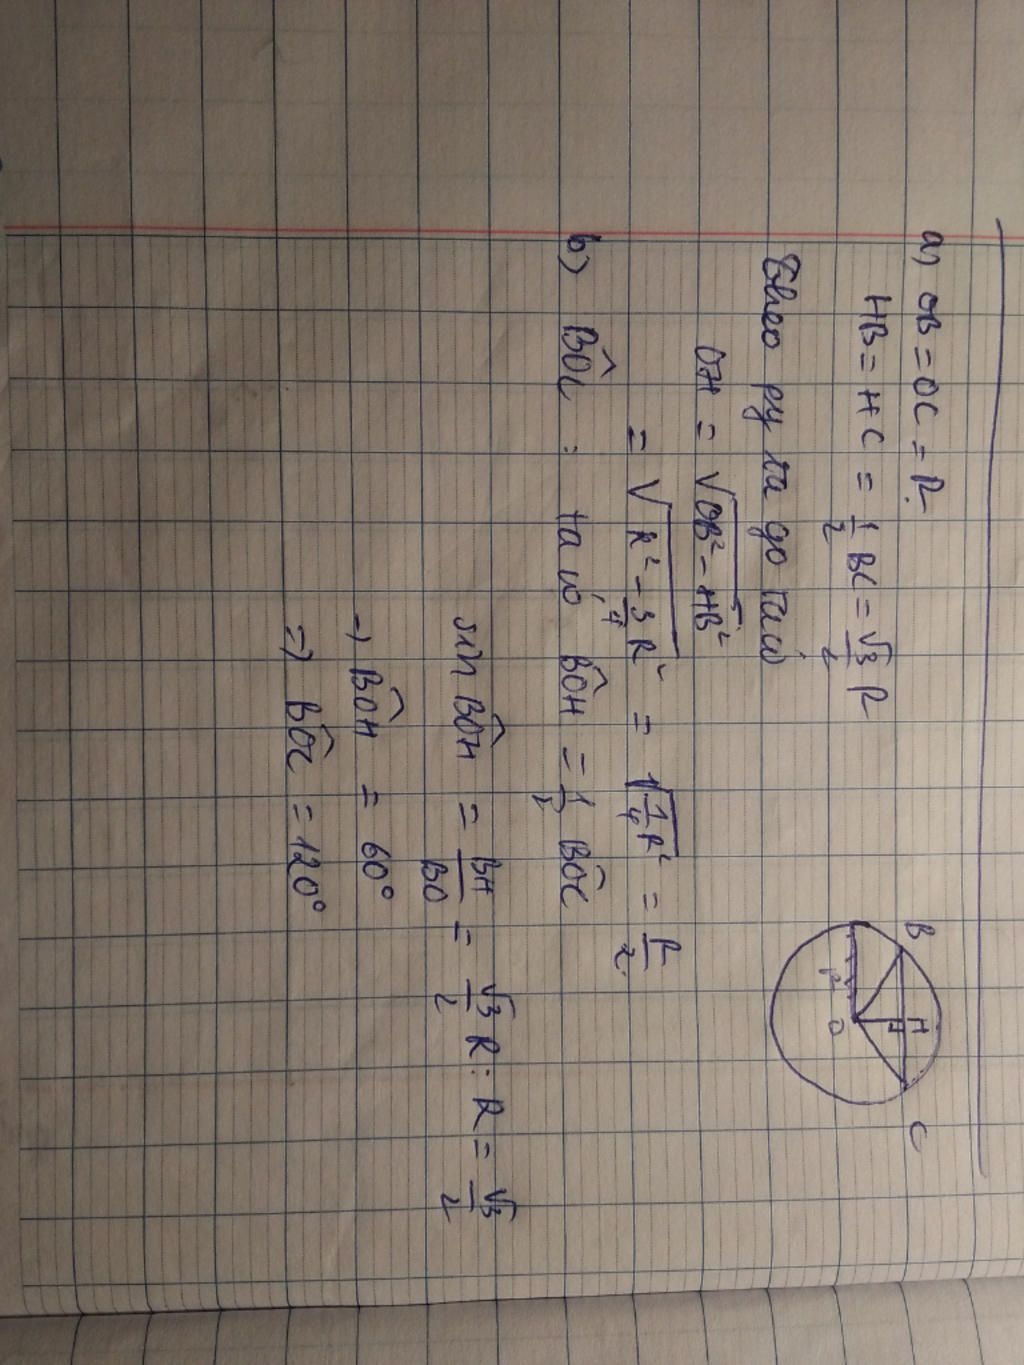 a) OB = OC = R
HB = HC = 1/2 BC = √3/2 R
Theo py ta go ta có
OH = √(OB² - HB²)
= √(R² - 3/4 R²) = √(1/4 R²) = R/2
b) BÔC : ta có BÔH = 1/2 BÔC
sin BÔH = BH/BO = √3/2 R : R = √3/2
→ BÔH = 60°
=> BÔC = 120°
B
H
C
R
O